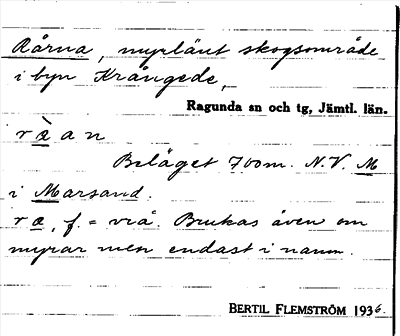 Råarna, myrlänt skogsområde
i byn Krångede,
Ragunda sn och tg, Jämtl. län.
ræ̀an
Beläget 700m. N.V. M
i Marsand.
ræ, f. = vrå. Brukas även om
myrar men endast i namn.
BERTIL FLEMSTRÖM 1936.